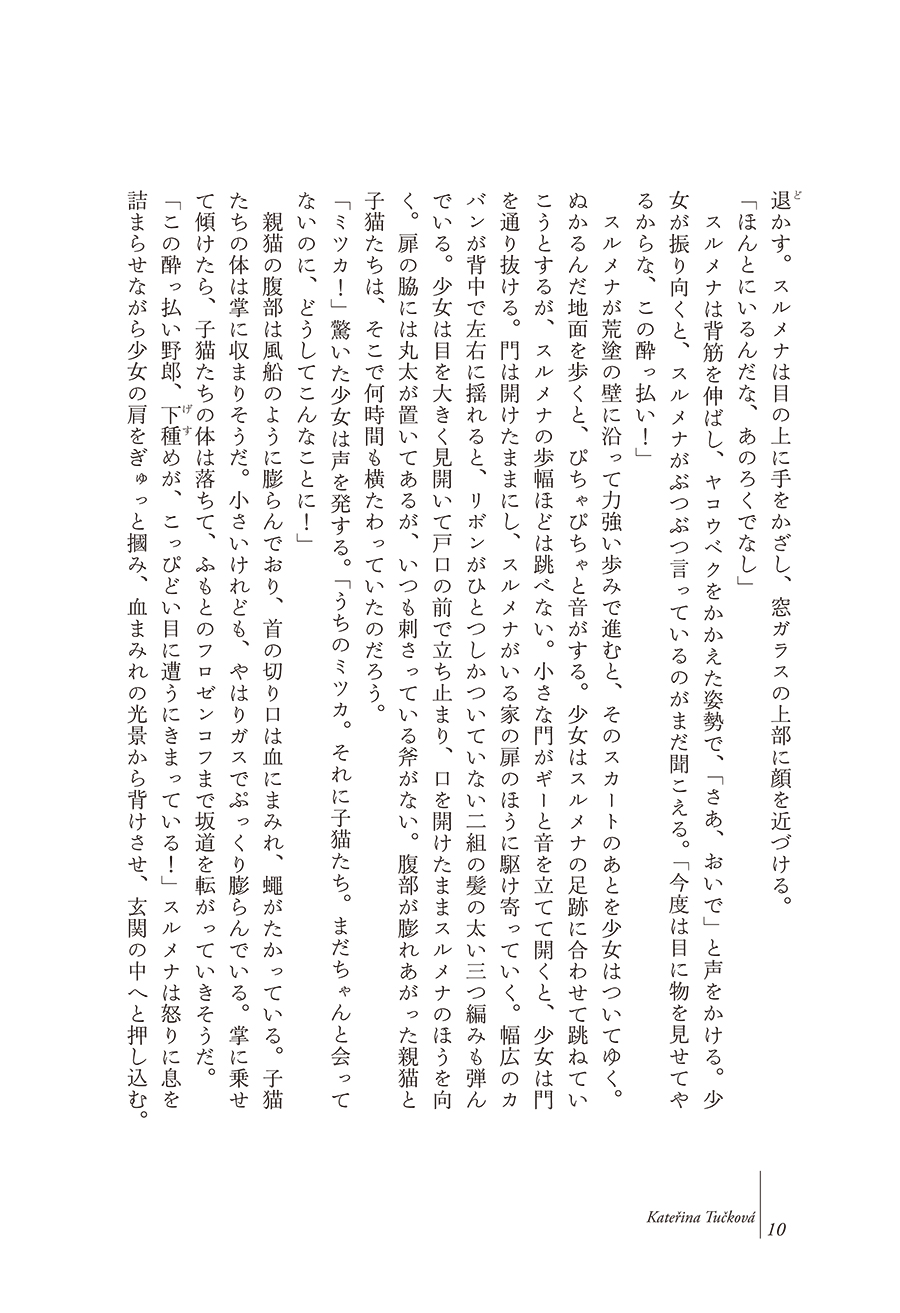 退かす。スルメナは目の上に手をかざし、窓ガラスの上部に顔を近づける。
「ほんとにいるんだな、あのろくでなし」
スルメナは背筋を伸ばし、ヤコウベクをかかえた姿勢で、「さあ、おいで」と声をかける。少
女が振り向くと、スルメナがぶつぶつ言っているのがまだ聞こえる。「今度は目に物を見せてや
るからな、この酔っ払い！」
スルメナが荒塗の壁に沿って力強い歩みで進むと、そのスカートのあとを少女はついてゆく。
ぬかるんだ地面を歩くと、ぴちゃぴちゃと音がする。少女はスルメナの足跡に合わせて跳ねてい
こうとするが、スルメナの歩幅ほどは跳べない。小さな門がギーと音を立てて開くと、少女は門
を通り抜ける。門は開けたままにし、スルメナがいる家の扉のほうに駆け寄っていく。幅広のカ
バンが背中で左右に揺れると、リボンがひとつしかついていない二組の髪の太い三つ編みも弾ん
でいる。少女は目を大きく見開いて戸口の前で立ち止まり、口を開けたままスルメナのほうを向
く。扉の脇には丸太が置いてあるが、いつも刺さっている斧がない。腹部が膨れあがった親猫と
子猫たちは、そこで何時間も横たわっていたのだろう。
「ミツカ！」驚いた少女は声を発する。「うちのミツカ。それに子猫たち。まだちゃんと会って
ないのに、どうしてこんなことに！」
親猫の腹部は風船のように膨らんでおり、首の切り口は血にまみれ、蠅がたかっている。子猫
たちの体は掌に収まりそうだ。小さいけれども、やはりガスでぷっくり膨らんでいる。掌に乗せ
て傾けたら、子猫たちの体は落ちて、ふもとのフロゼンコフまで坂道を転がっていきそうだ。
「この酔っ払い野郎、下種めが、こっぴどい目に遭うにきまっている！」スルメナは怒りに息を
詰まらせながら少女の肩をぎゅっと摑み、血まみれの光景から背けさせ、玄関の中へと押し込む。
ど
げす
Kateřina Tučková
10